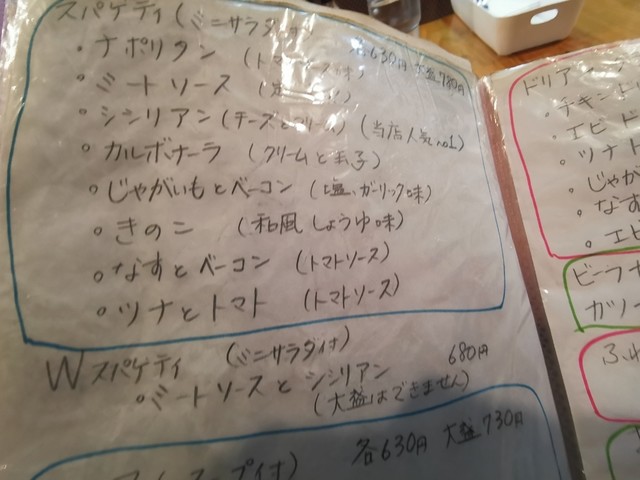 スパゲティ (ミニサラダ付
各630円 大盛730円
・ナポリタン (トマト
・ミートソース
・シシリアン (チーズとクリーム) (当店人気no1)
・カルボナーラ (クリームと玉子)
・じゃがいもとベーコン (塩、ガーリック味)
・きのこ (和風しょうゆ味)
・なすとベーコン (トマトソース)
・ツナとトマト (トマトソース)
Wスパゲティ (ミニサラダ付) 680円
・ミートソースとシシリアン
(大盛はできません)
各630円 大盛730円
ドリア
・チキン
・エビ
・ツナ
・じゃが
・なす
・エビ
ビーフ
ガ
ふわ